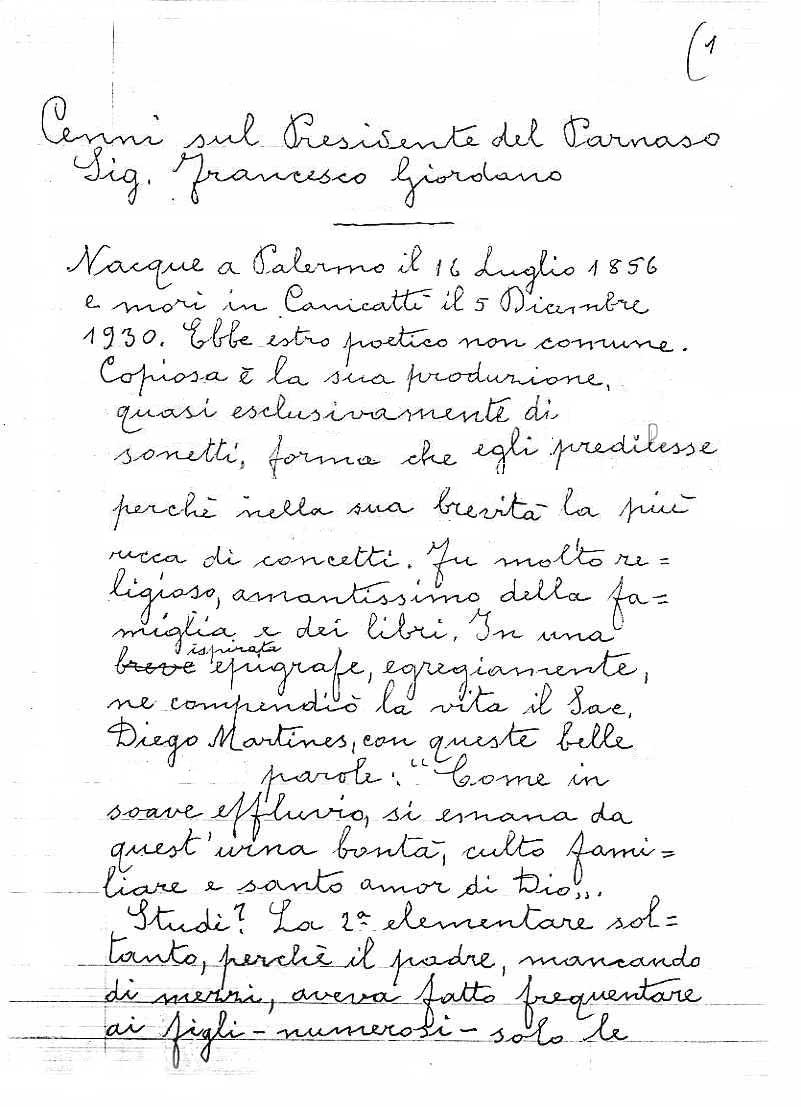 (1
Cenni sul Presidente del Parnaso
Sig. Francesco Giordano
Nacque a Palermo il 16 Luglio 1856
e morì in Canicattì il 5 Dicembre
1930. Ebbe estro poetico non comune.
Copiosa è la sua produzione,
quasi esclusivamente di
sonetti, forma che egli predilesse
perchè nella sua brevità la più
ricca di concetti. Fu molto re=
ligioso, amantissimo della fa=
miglia e dei libri. In una
ispirata
breve epigrafe, egregiamente,
ne compendiò la vita il Sac.
Diego Martines, con queste belle
parole: "Come in
soave effluvio, si emana da
quest'urna bontà, culto fami=
liare e santo amor di Dio...
Studi? La 2ª elementare sol=
tanto, perchè il padre, mancando
di mezzi, aveva fatto frequentare
ai figli - numerosi - solo le